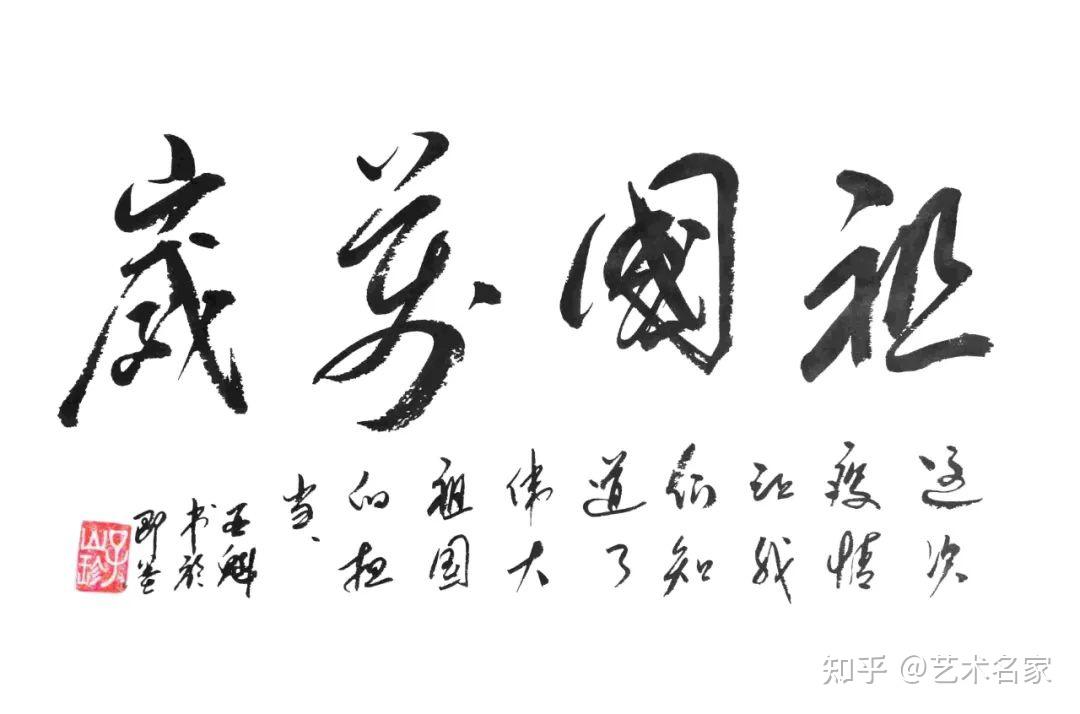 祖國萬歲
这次
疫情
让我
们知
道了
伟大
祖国
的担
当、
王魁
书於
知乎 @艺术名家